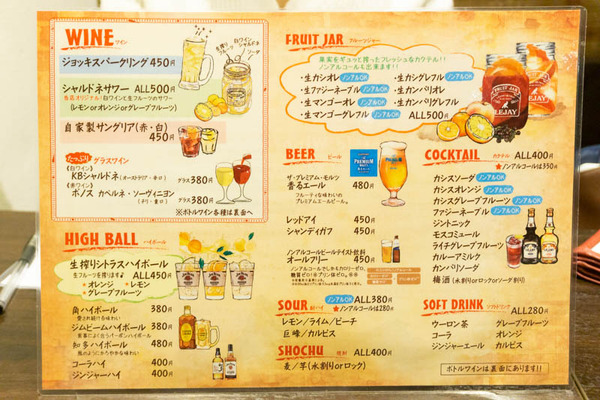 WINE ワイン
ジョッキスパークリング 450円
シャルドネサワー ALL500円
当店オリジナル!白ワインと生フルーツのサワー
(レモンorオレンジorグレープフルーツ)
自家製サングリア(赤・白)
450円
たっぷり グラスワイン
<白ワイン>
KBシャルドネ (オーストラリア・辛口) グラス380円
<赤ワイン>
ボノス カベルネ・ソーヴィニヨン グラス380円
(チリ・重口)
※ボトルワイン各種は裏面へ
生搾りフルーツ
白ワイン シャルドネ
ソーダ
HIGH BALL ハイボール
生搾りシトラスハイボール
生フルーツを搾ります♪ ALL450円
・オレンジ ・レモン
・グレープフルーツ
角ハイボール 380円
愛され続ける味わい
ジムビームハイボール 380円
世界中で愛されるバーボンハイボール
知多ハイボール 480円
風のように軽やかな味わい
コーラハイ 400円
ジンジャーハイ 400円
FRUIT JAR フルーツジャー
果実をギュッと搾ったフレッシュなカクテル!!
ノンアルコールも出来ます!!
・生カシオレ ノンアルOK ・生カシグレフル ノンアルOK
・生ファジーネーブル ノンアルOK ・生カンパリオレ
・生マンゴーオレ ノンアルOK ・生カンパリグレフル
・生マンゴーグレフル ノンアルOK ALL500円
FRUIT JAR
LEJAY
BEER ビール
PREMIUM
ザ・プレミアム・モルツ
香るエール 480円
フルーティな味わいの
プレミアムエールビール。
レッドアイ 450円
シャンディガフ 450円
ノンアルコールビールテイスト飲料
オールフリー 450円
ノンアルコールでしかもカロリーゼロ、
糖質ゼロ※プリン体ゼロ。※
SOUR 酎ハイ ノンアルOK ALL380円
★ノンアルコールは280円
レモン/ライム/ピーチ
巨峰/カルピス
SHOCHU 焼酎 ALL400円
麦/芋(水割りorロック)
COCKTAIL カクテル ALL400円
★ノンアルコールは350円
カシスソーダ ノンアルOK
カシスオレンジ ノンアルOK
カシスグレープフルーツ ノンアルOK
ファジーネーブル ノンアルOK
ジントニック
モスコミュール
ライチグレープフルーツ
カルーアミルク
カンパリソーダ
梅酒 (水割りorロックorソーダ割り)
SOFT DRINK ソフトドリンク ALL280円
ウーロン茶 グレープフルーツ
コーラ オレンジ
ジンジャーエール カルピス
ボトルワインは裏面にあります!!